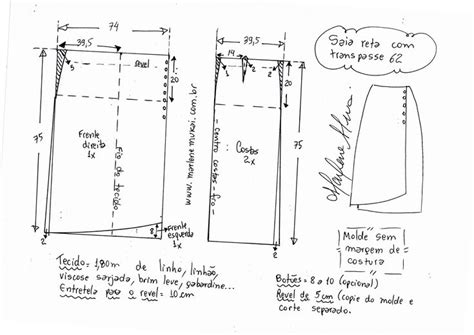 74
39,5
39,5
14
Saia reta com
transpasse 62
3
revel
20
1
2
2
20
75
75
Frente
direita
1x
Fio do tecido
www.marlenemukai.com.br
centro costas - fio
Costas
2x
Marlene Mukai
8
Frente
esquerda
1x
2
2
Molde sem
margem de
costura
Tecido = 1,80m de linho, linhão,
viscose sarjada, brim leve, gabardine...
Entretela para o revel = 10 cm
Botões = 8 a 10 (opcional)
Revel de 5 cm (copie do molde e
corte separado.